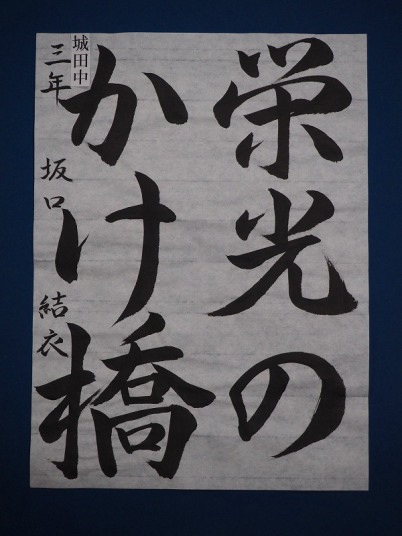 栄光の
かけ橋
城田中
三年 坂口 結衣